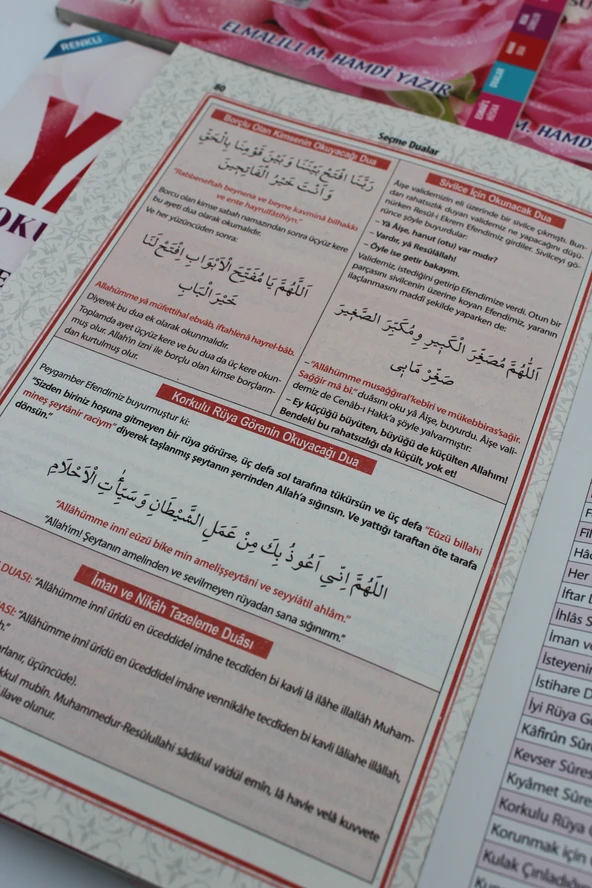 ELMALILI M. HAMDİ YAZIR
M. HAMDİ
RENKLİ
YA
OKU
80
Seçme Dualar
Borçlu Olan Kimsenin Okuyacağı Dua
رَبَّنَا افْتَحْ بَيْنَنَا وَبَيْنَ قَوْمِنَا بِالْحَقِّ
وَاَنْتَ خَيْرُ الْفَاتِحِينَ
"Rabbeneftah beynena ve beyne kavminâ bilhakkı
ve ente hayrulfâtihîyn."
Borcu olan kimse sabah namazından sonra üçyüz kere
bu ayeti dua olarak okumalıdır.
Ve her yüzüncüden sonra:
اَللّٰهُمَّ يَا مُفَتِّحَ الْاَبْوَابِ افْتَحْ لَنَا
خَيْرَ الْبَابِ
Allahümme yâ müfettihal ebvâb, iftahlenâ hayrel-bâb.
Diyerek bu dua ek olarak okunmalıdır.
Toplamda ayet üçyüz kere ve bu dua da üç kere okun-
muş olur. Allah'ın izni ile borçlu olan kimse borçların-
dan kurtulmuş olur.
Sivilce İçin Okunacak Dua
Âişe validemizin eli üzerinde bir sivilce çıkmıştı. Bun-
dan rahatsızlık duyan validemiz ne yapacağını düşü-
nürken Resûl-i Ekrem Efendimiz girdiler. Sivilceyi gö-
rünce şöyle buyurdular:
– Yâ Âişe, hanut (otu) var mıdır?
– Vardır, yâ Resûlallah!
– Öyle ise getir bakayım.
Validemiz, istediğini getirip Efendimize verdi. Otun bir
parçasını sivilcenin üzerine koyan Efendimiz, yaranın
ilaçlanmasını maddî şekilde yaparken de:
اَللّٰهُمَّ مُصَغِّرَ الْكَبِيرِ وَمُكَبِّرَ الصَّغِيرِ
صَغِّرْ مَابِى
– "Allâhümme musağğıral'kebiri ve mükebbiras'sağir.
Sağğir mâ bî." duâsını oku yâ Âişe, buyurdu. Âişe vali-
demiz de Cenâb-ı Hakk'a şöyle yalvarmıştır:
– Ey küçüğü büyüten, büyüğü de küçülten Allahım!
Bendeki bu rahatsızlığı da küçült, yok et!
Korkulu Rüya Görenin Okuyacağı Dua
Peygamber Efendimiz buyurmuştur ki:
"Sizden biriniz hoşuna gitmeyen bir rüya görürse, üç defa sol tarafına tükürsün ve üç defa "Eûzü billahi
mineş şeytânir raciym" diyerek taşlanmış şeytanın şerrinden Allah'a sığınsın. Ve yattığı taraftan öte tarafa
dönsün."
اَللّٰهُمَّ اِنّ۪ي اَعُوذُ بِكَ مِنْ عَمَلِ الشَّيْطَانِ وَسَيِّأٰتِ الْاَحْلَامِ
"Allâhümme innî eûzü bike min amelişşeytâni ve seyyiâtil ahlâm."
"Allah'ım! Şeytanın amelinden ve sevilmeyen rüyadan sana sığınırım."
İman ve Nikâh Tazeleme Duâsı
DUASI: "Allâhümme innî ürîdü en üceddidel imâne tecdîden bi kavli lâ ilâhe illallâh Muham-
ASI: "Allâhümme innî ürîdü en üceddidel imâne vennikâhe tecdîden bi kavli lâilahe illâllah,
arlanır, üçüncüde).
kkul mubîn. Muhammedur-Resûlullahi sâdikul va'dül emîn, lâ havle velâ kuvvete
ilave olunur.
Her
İftar D
İhlâs S
İman ve
İsteyenin
İstihare D
İyi Rüya G
Kâfirûn Sûr
Kevser Sûres
Kıyâmet Sûre
Korkulu Rüya
Korunmak için
Kulak Çınladığın